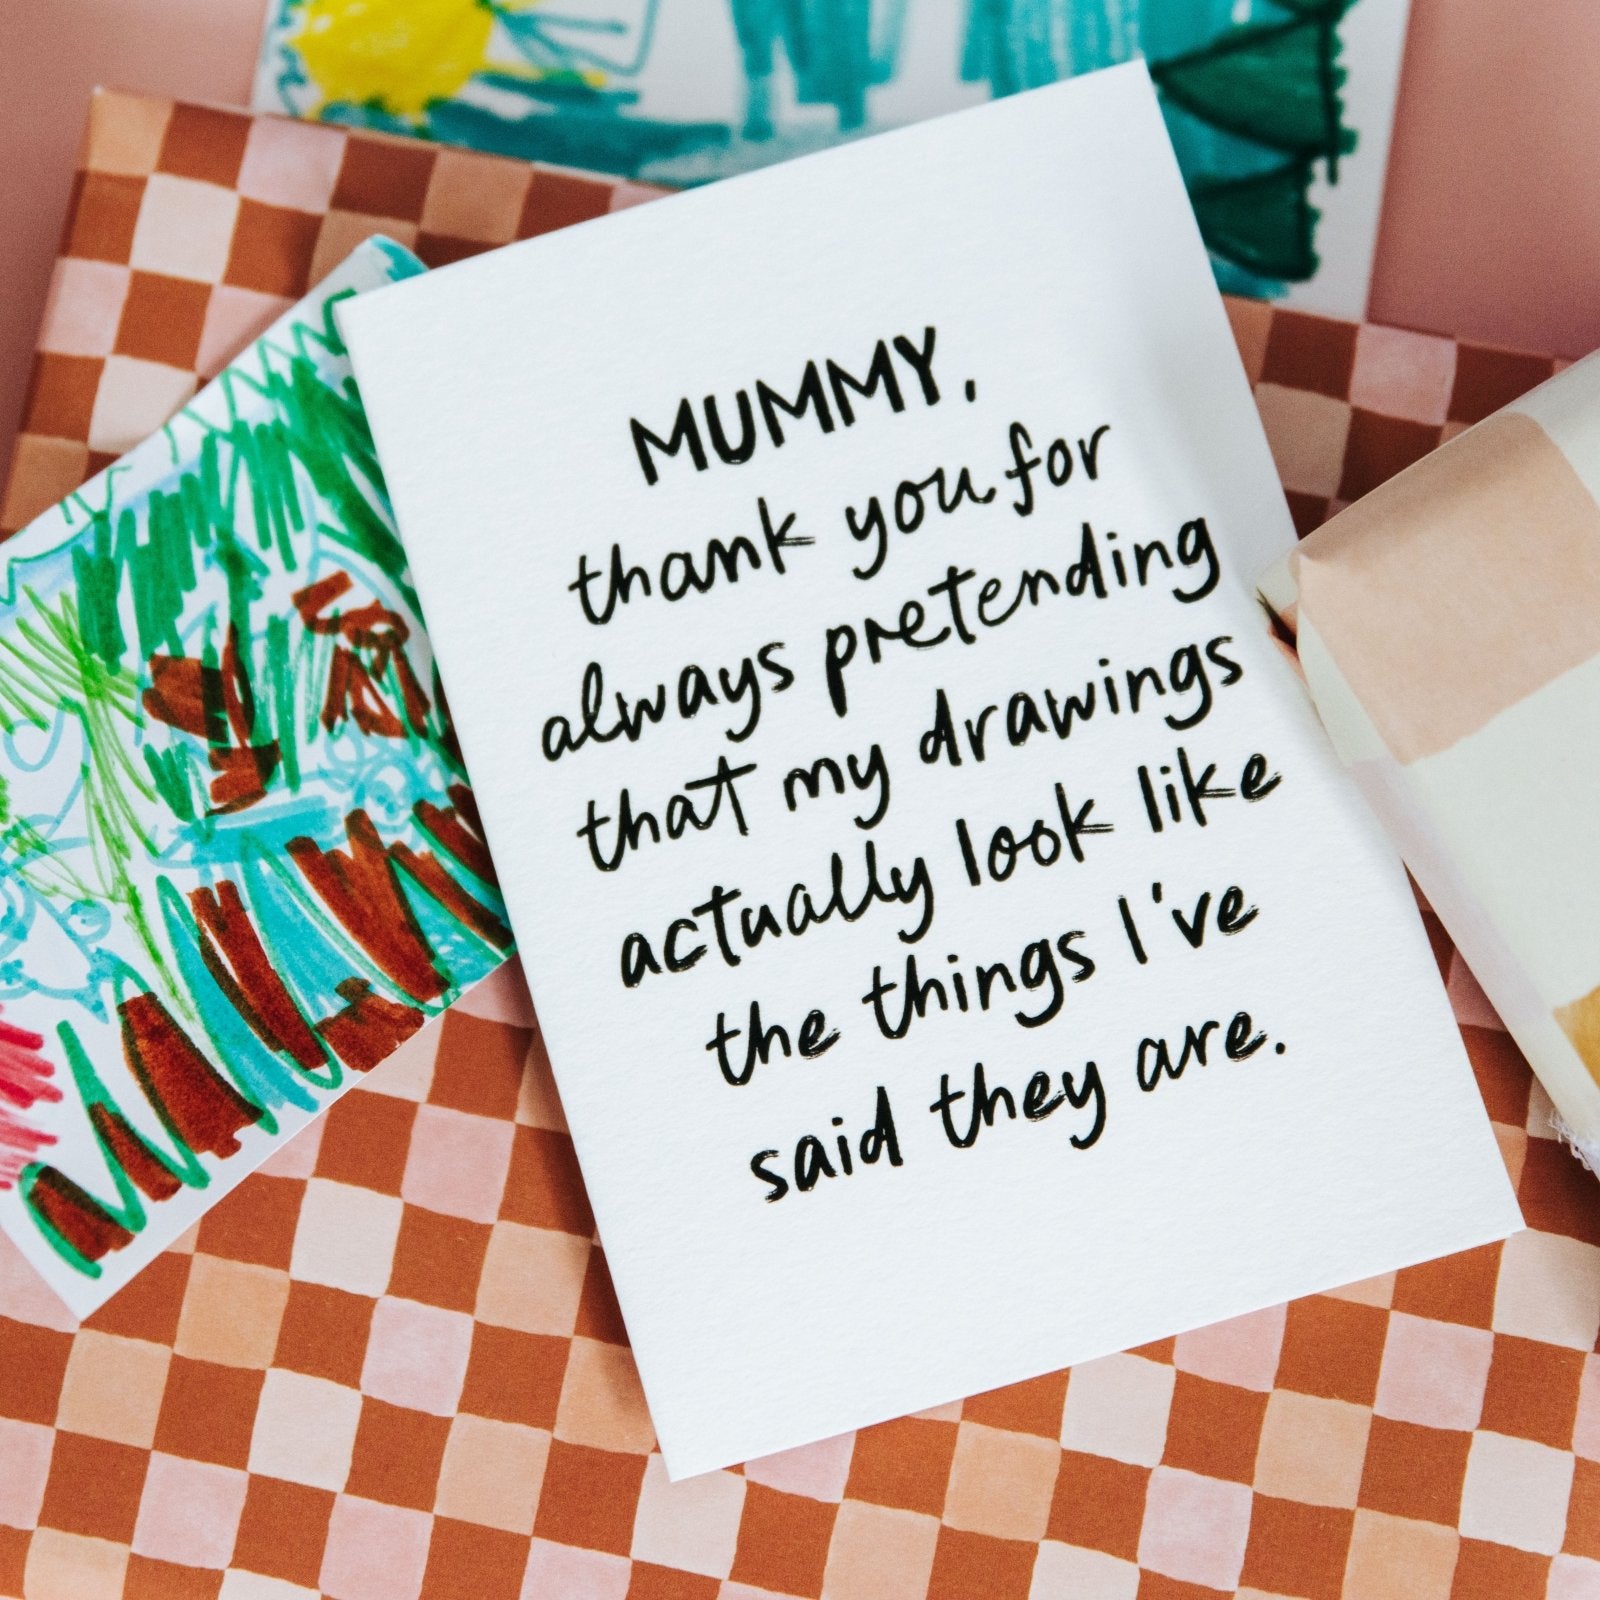 MUMMY,
thank you for
always pretending
that my drawings
actually look like
the things I've
said they are.